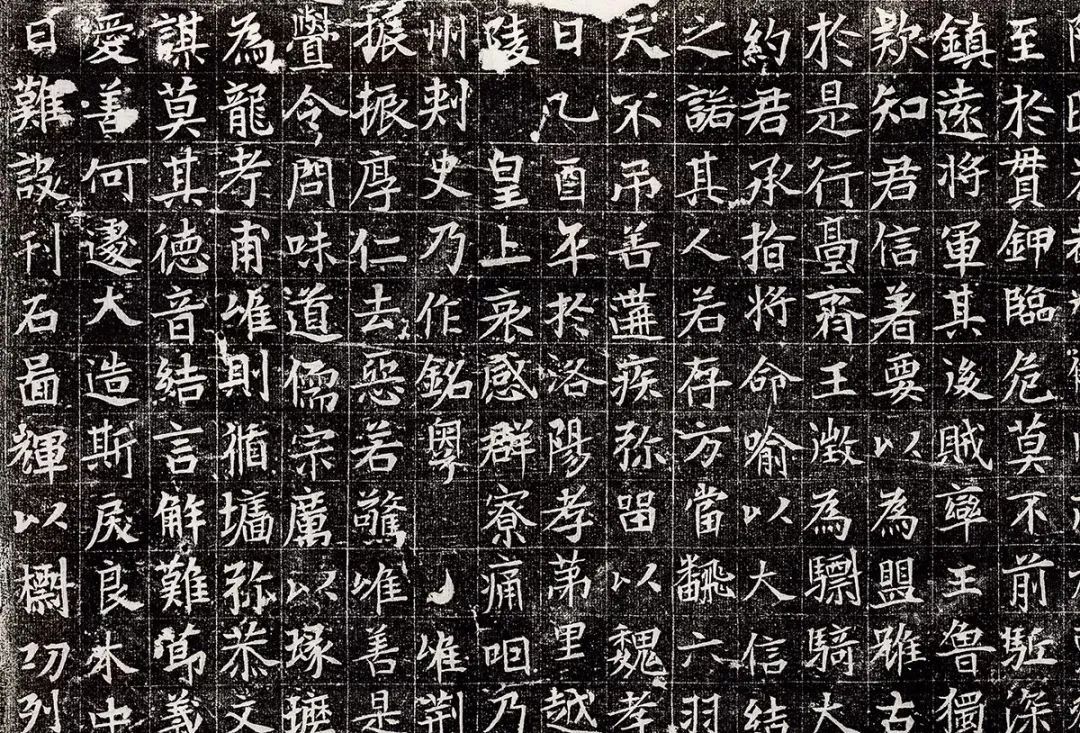 至於貫鉀臨危莫不前駈深
鎮遠將軍其後賊率王魯獨
欵知君信著要以為盟雖古
於是行臺齊王徵為驃騎大
約君承指將命喻以大信結
之諾其人若存方當翻六羽
天不弔善遘疾弥留以魏孝
日酉年於洛陽孝第里越
陵 皇上哀感群寮痛咽乃
州刾史乃作銘粤 唯荊
振振厚仁去惡若驚唯善是
譽令問味道儒宗厲以琢磨
為龍孝甫唯則循墻弥恭文
謀莫其德音結言解難節義
愛善何遽大造斯戾良木中
日難諼刊石啚輝以檦功列